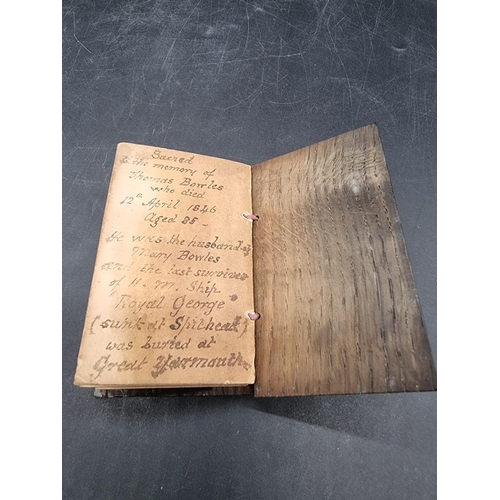 Sacred
to the memory of
Thomas Bowles
who died
12th April 1846
Aged 85 -
he was the husband of
Mary Bowles
and the last survivor
of H. M. Ship
Royal George
(sunk at Spithead)
was buried at
Great Yarmouth